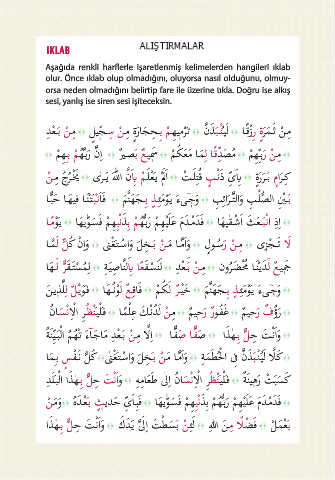 ALIŞTIRMALAR
IKLAB
Aşağıda renkli harflerle işaretlenmiş kelimelerden hangileri ıklab
olur. Önce ıklab olup olmadığını, oluyorsa nasıl olduğunu, olmuy-
orsa neden olmadığını belirtip fare ile üzerine tıkla. Doğru ise alkış
sesi, yanlış ise siren sesi işiteceksin.
مِنْ ثَمَرَةٍ رِزْقًا ۞ لَيُنْبَذَنَّ ۞ تَرْمِيهِمْ بِحِجَارَةٍ مِنْ سِجِّيلٍ ۞ مِنْ بَعْدِ
۞ مِنْ رَبِّهِمْ ۞ مُصَدِّقًا لِمَا مَعَكُمْ ۞ سَمِيعٌ بَصِيرٌ ۞ اِنَّ رَبَّهُمْ بِهِمْ ۞
كِرَامٍ بَرَرَةٍ ۞ بِاَىِّ ذَنْبٍ قُتِلَتْ ۞ اَلَمْ يَعْلَمْ بِاَنَّ اللّٰهَ يَرٰى ۞ يَخْرُجُ مِنْ
بَيْنِ الصُّلْبِ وَالتَّرَائِبِ ۞ وَجٖىءَ يَوْمَئِذٍ بِجَهَنَّمَ ۞ فَاَنْبَتْنَا فِيهَا حَبًّا
۞ اِذِ انْبَعَثَ اَشْقٰيهَا ۞ فَدَمْدَمَ عَلَيْهِمْ رَبُّهُمْ بِذَنْبِهِمْ فَسَوّٰيهَا ۞ يَوْمًا
لَا تَجْزٖى ۞ مِنْ رَسُولٍ ۞ وَاَمَّا مَنْ بَخِلَ وَاسْتَغْنٰى ۞ وَاِنْ كُلٌّ لَمَّا
جَمٖيعٌ لَدَيْنَا مُحْضَرُونَ ۞ مِنْ بَعْدِ ۞ لَنَسْفَعًا بِالنَّاصِيَةِ ۞ لِمُسْتَقَرٍّ لَهَا
۞ وَجٖىءَ يَوْمَئِذٍ بِجَهَنَّمَ ۞ خَيْرٌ لَكُمْ ۞ فَاقِعٌ لَوْنُهَا ۞ فَوَيْلٌ لِلَّذِينَ
۞ رَؤُفٌ رَحِيمٌ ۞ غَفُورٌ رَحِيمٌ ۞ مِنْ لَدُنْكَ عِلْمًا ۞ فَلْيَنْظُرِ الْاِنْسَانُ
۞ وَاَنْتَ حِلٌّ بِهٰذَا ۞ صَفًّا صَفًّا ۞ اِلَّا مِنْ بَعْدِ مَاجَاءَ تْهُمُ الْبَيِّنَةُ
۞ كَلَّا لَيُنْبَذَنَّ فِى الْحُطَمَةِ ۞ وَاَمَّا مَنْ بَخِلَ وَاسْتَغْنٰى ۞ كُلُّ نَفْسٍ بِمَا
كَسَبَتْ رَهِينَةٌ ۞ فَلْيَنْظُرِ الْاِنْسَانُ اِلٰى طَعَامِهِ ۞ وَاَنْتَ حِلٌّ بِهٰذَا الْبَلَدِ
۞ فَدَمْدَمَ عَلَيْهِمْ رَبُّهُمْ بِذَنْبِهِمْ فَسَوّٰيهَا ۞ فَبِاَىِّ حَدِيثٍ بَعْدَهُ ۞ وَمَنْ
يَعْمَلْ ۞ فَضْلًا مِنَ اللّٰهِ ۞ لَئِنْ بَسَطْتَ اِلَىَّ يَدَكَ ۞ وَاَنْتَ حِلٌّ بِهٰذَا